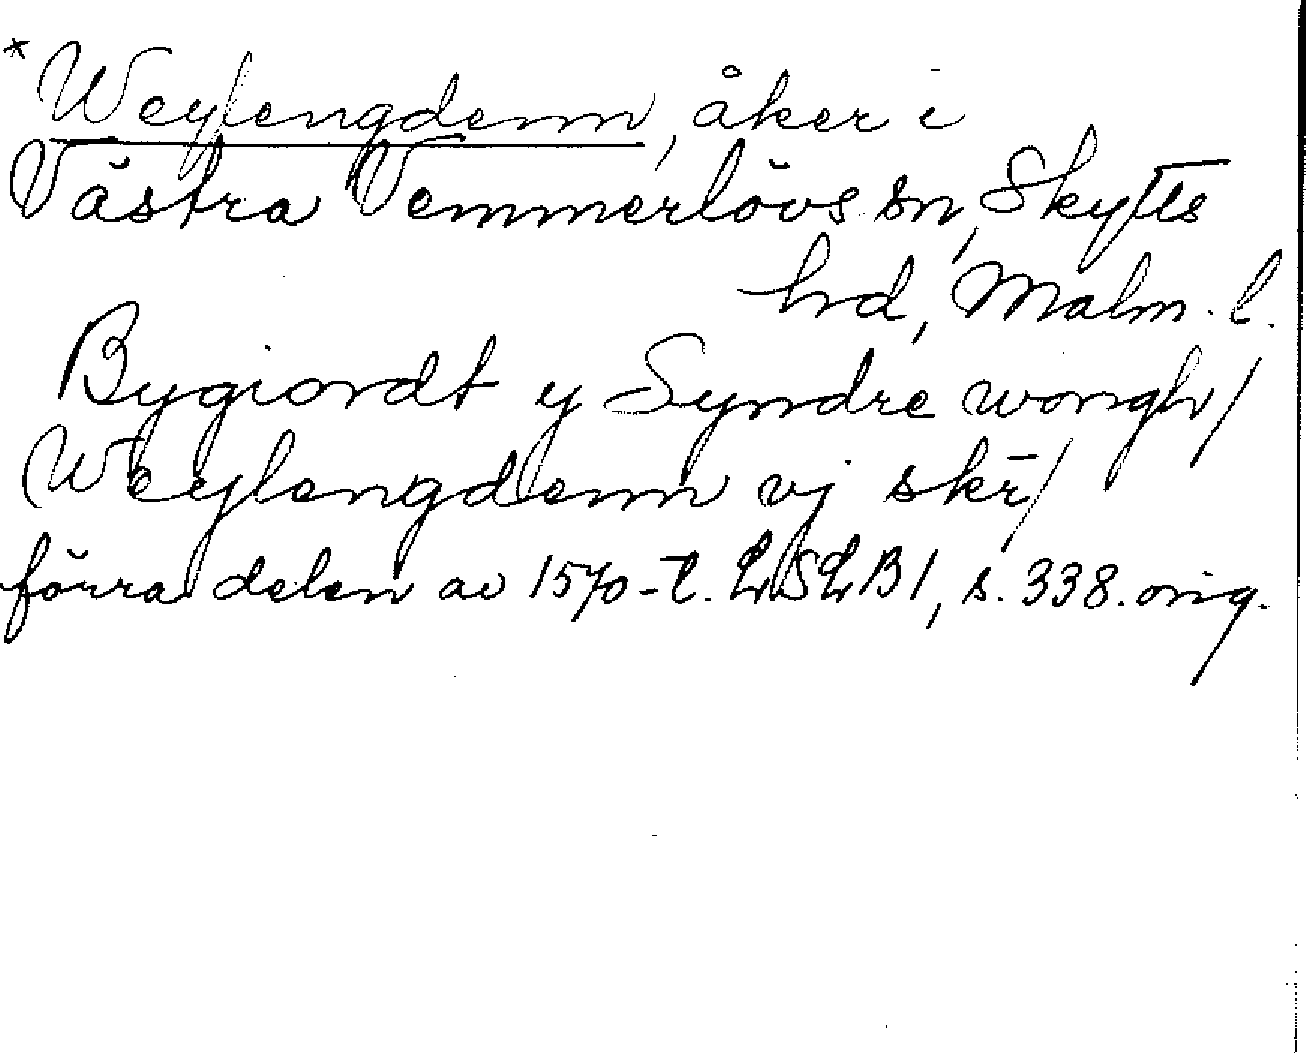 *Weylengdenn, åker i
Västra Vemmerlövs sn, Skytts
hd, Malm. l.
Bygiordt y Syndre wongh/
Weylengdenn vj skr̄/
förra delen av 1570-t. LSLB1, s. 338. orig.